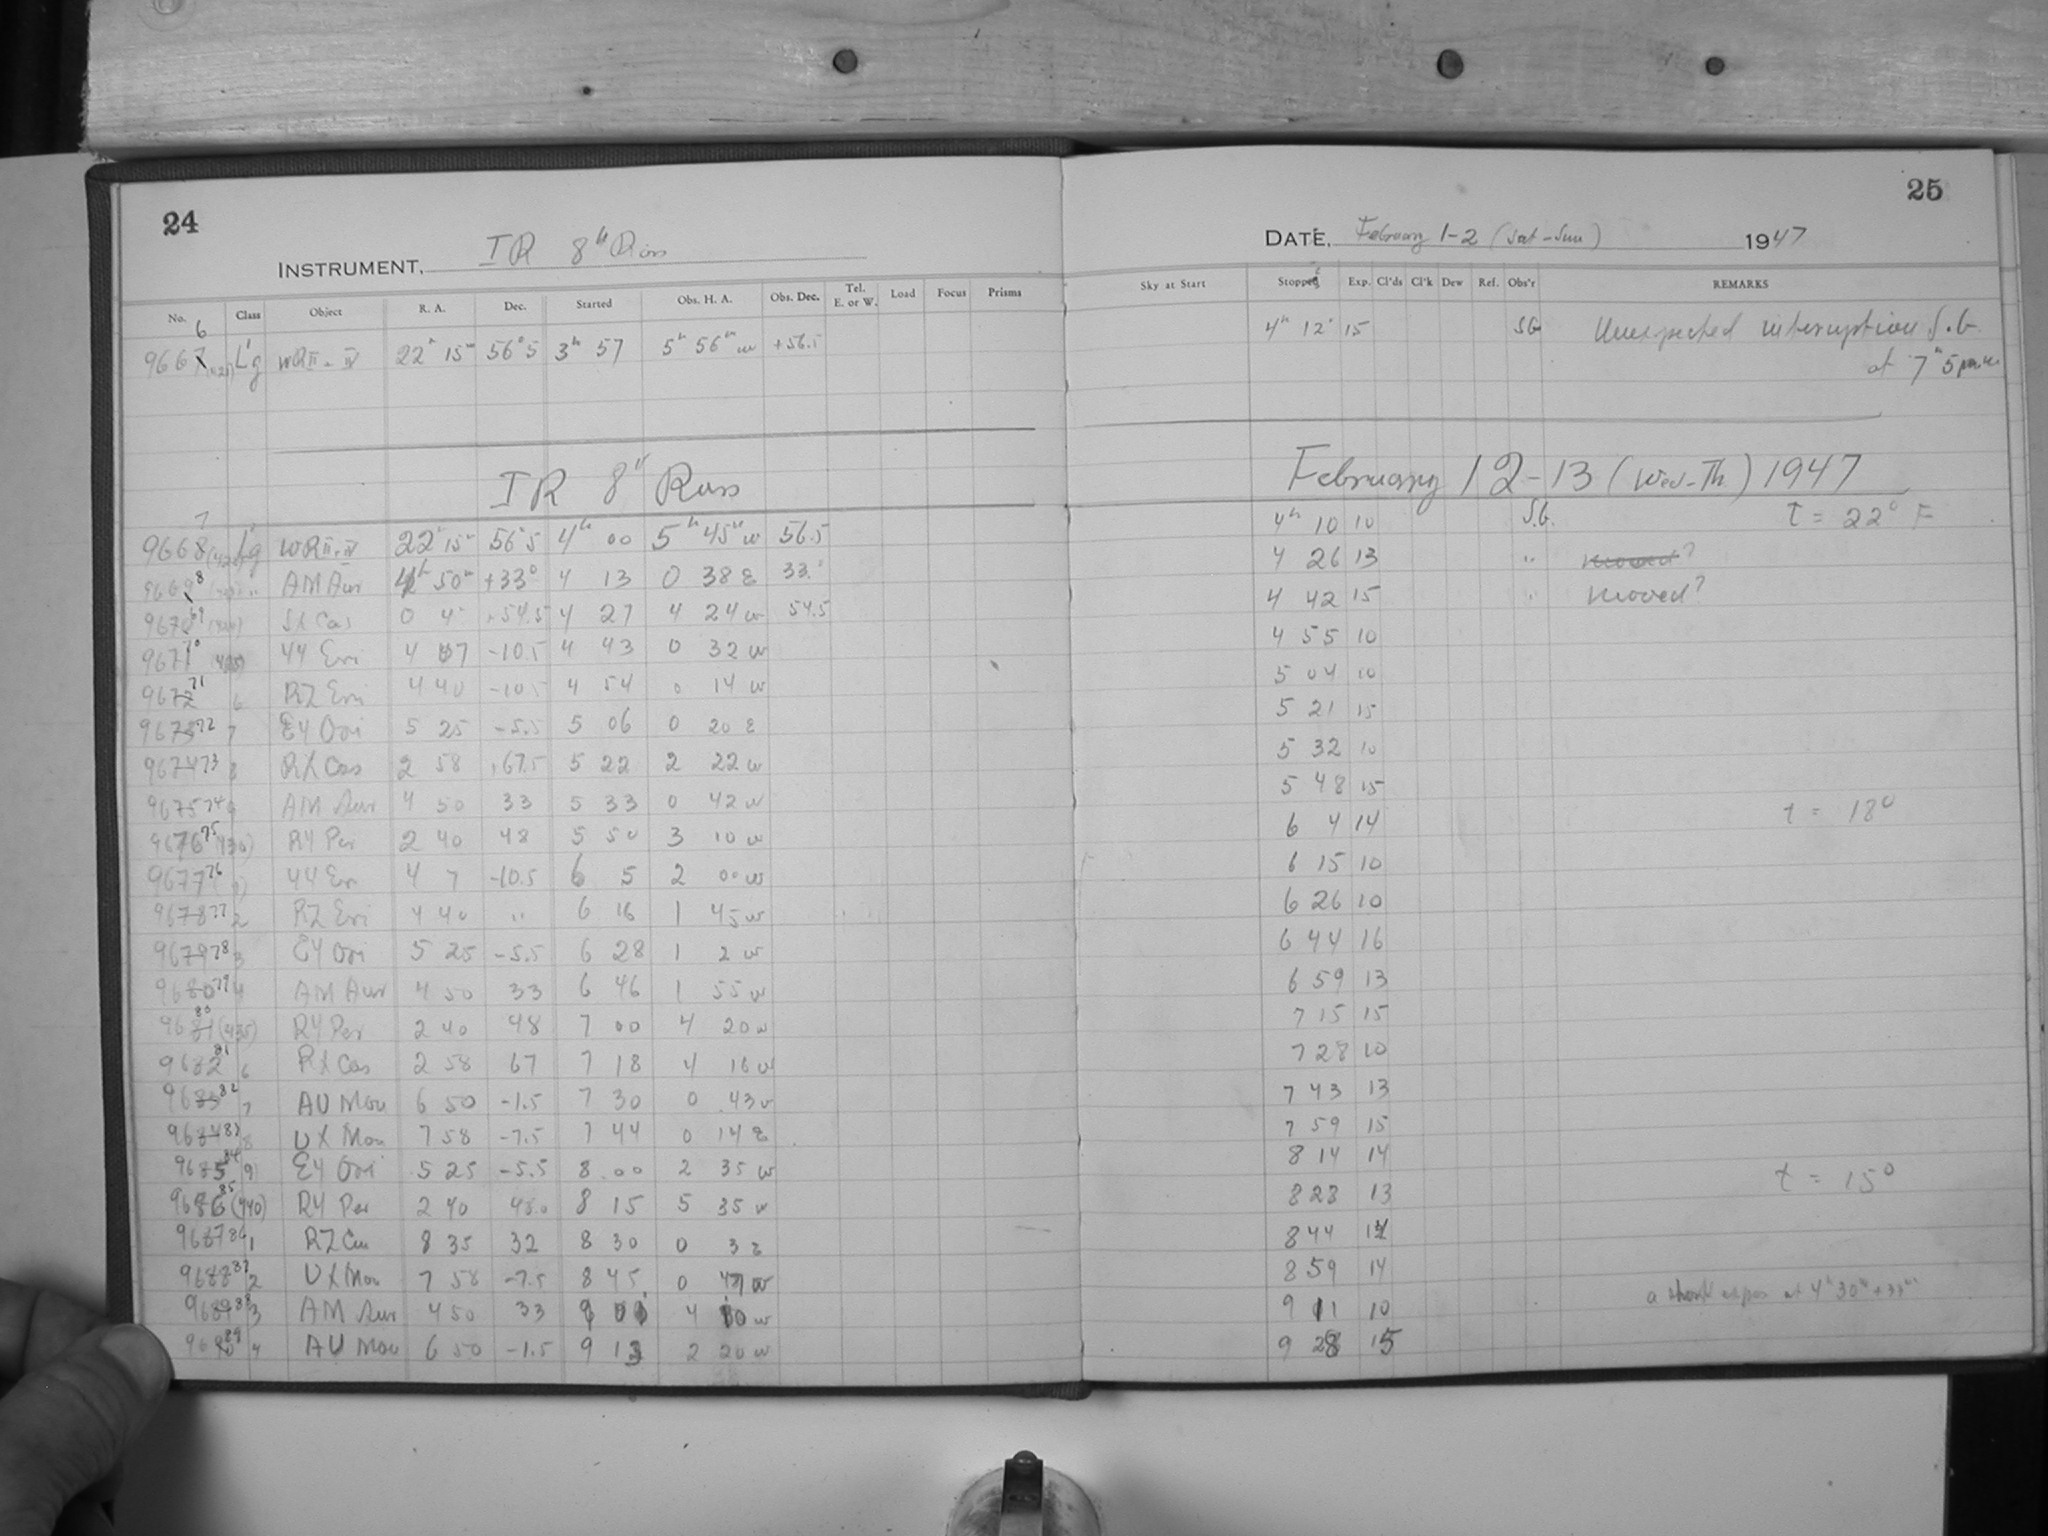 24
INSTRUMENT, IR 8" Ross
No. Class Object R. A. Dec. Started Obs. H. A. Obs. Dec. Tel. E. or W. Load Focus Prisms
9667 6 L'g WR II-IV 22h 15m 56°5 3h 57 5h 56m w +56.5
IR 8" Ross
9668 7 L'g WR II-IV 22h 15m 56°5 4h 00 5h 45m w 56.5
9669 8 " AM Aur 4h 50m +33° 4 13 0 38 E 33.°
9670 69 SX Cas 0 4 +54.5 4 27 4 24 w 54.5
9671 70 (425) YY Eri 4 07 -10.5 4 43 0 32 w
9672 71 6 RZ Eri 4 40 -10.5 4 54 0 14 w
9673 72 7 EY Ori 5 25 -5.5 5 06 0 20 E
9674 73 8 RX Cas 2 58 +67.5 5 22 2 22 w
9675 74 9 AM Aur 4 50 33 5 33 0 42 w
9676 75 (430) RY Per 2 40 48 5 50 3 10 w
9677 76 1) YY Er 4 7 -10.5 6 5 2 00 w
9678 77 2 RZ Eri 4 40 " 6 16 1 45 w
9679 78 3 EY Ori 5 25 -5.5 6 28 1 2 w
9680 79 4 AM Aur 4 50 33 6 46 1 55 w
9681 80 (435) RY Per 2 40 48 7 00 4 20 w
9682 81 6 RX Cas 2 58 67 7 18 4 16 w
9683 82 7 AU Mon 6 50 -1.5 7 30 0 43 w
9684 83 8 UX Mon 7 58 -7.5 7 44 0 14 E
9685 84 9) EY Ori 5 25 -5.5 8 00 2 35 w
9686 85 (440) RY Per 2 40 48.0 8 15 5 35 w
9687 86 1 RZ Cnc 8 35 32 8 30 0 3 E
9688 87 2 UX Mon 7 58 -7.5 8 45 0 47 w
9689 88 3 AM Aur 4 50 33 9 4 10 w
9690 89 4 AU Mon 6 50 -1.5 9 13 2 20 w
25
DATE, February 1-2 (Sat-Sun) 1947
Sky at Start Stopped Exp. Cl'ds Cl'k Dew Ref. Obs'r REMARKS
4h 12 15 SG Unexpected interruption S.G.
at 7h 5
February 12-13 (Wed-Th) 1947
4h 10 10 S.G. t = 22° F
4 26 13 " moved?
4 42 15 " moved?
4 55 10
5 04 10
5 21 15
5 32 10
5 48 15
6 4 14 t = 18°
6 15 10
6 26 10
6 44 16
6 59 13
7 15 15
7 28 10
7 43 13
7 59 15
8 14 14
8 28 13 t = 15°
8 44 14
8 59 14
9 11 10 a short at 4h 30m +33°
9 28 15